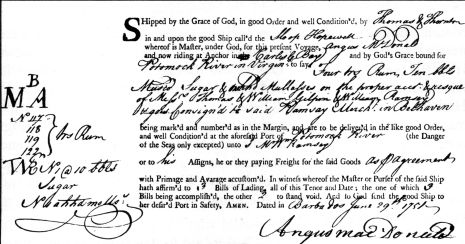 SHipped by the Grace of God, in good Order and well Condition'd, by Thomas & Thornton
in and upon the good Ship call'd the Sloop Hopewell
whereof is Master, under God, for this present Voyage, Angus McDonel
and now riding at Anchor in Carlisle Bay and by God's Grace bound for
Potomock River in Virgin to say Four Rum, Ten bbls
Muscd Sugar & Mallasses on the proper acct & resque
of Messrs Thomas & William & William Ramsay
consign'd to said Ramsay Mercht in Belhaven
being mark'd and number'd as in the Margin, and are to be deliver'd in the like good Order,
and well Condition'd at the aforesaid Port of Potomock River (the Danger
of the Seas only excepted) unto Wm Ramsay
or to his Assigns, he or they paying Freight for the said Goods as pr Agreement
with Primage and Avarage accustom'd. In witness whereof the Master or Purser of the said Ship
hath affirm'd to 3 Bills of Lading, all of this Tenor and Date; the one of which 3
Bills being accomplish'd, the other 2 to stand void. And so God send the good Ship to
her desir'd Port in Safety, AMEN. Dated in Barbados June 29th 1751
Angus mac Donald
B
M A
No 117
118
119
Rum
No @ 10 bbls
Sugar